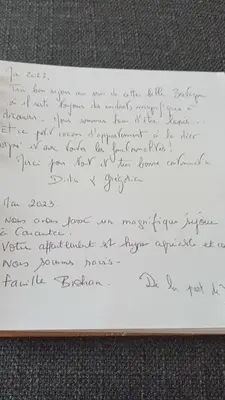 Mai 2023.
Très bon séjour au sein de cette belle Bretagne
où il reste toujours des endroits magnifiques à
découvrir. Nous sommes heureux d'être
Et ce petit cocon d'appartement à la
et avec toutes les fonctionnalités !
Merci pour tout et très bonne continuation
& Grégory
Mai 2023.
Nous avons passé un magnifique séjour
à Carantec.
Votre appartement est hyper agréable et
Nous sommes ravis.
Famille
De la part de